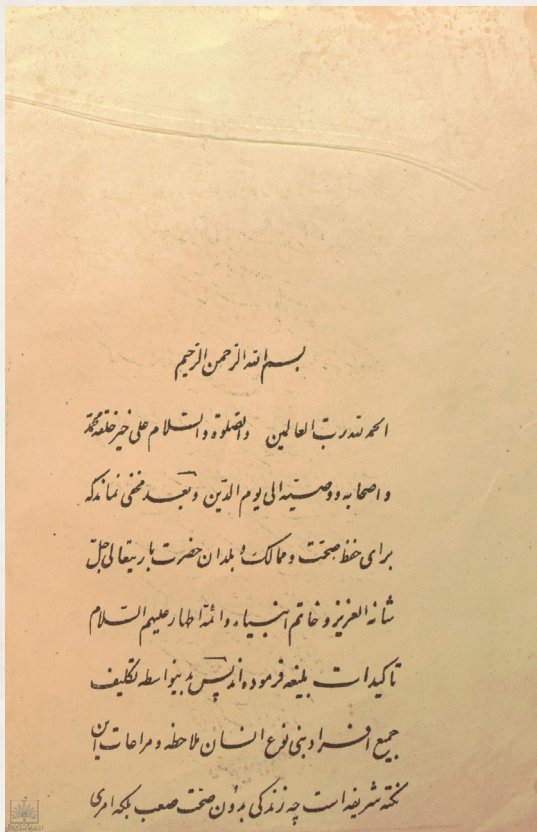 بسم الله الرحمن الرحیم
الحمد لله رب العالمین والصلوة والسلام علی خیر خلقه محمد
و اصحابه ووصیّه الی یوم الدّین وبعد مخفی نماند که
برای حفظ صحّت و ممالک و بلدان حضرت باریتعالی جلّ
شانه العزیز و خاتم انبیاء و ائمّه اطهار علیهم السّلام
تاکیدات بلیغه فرموده‌اند پس بدینواسطه تکلیف
جمیع افراد بنی نوع انسان ملاحظه و مراعات این
نکته شریفه است چه زندگی بدون صحّت صعب بلکه امری